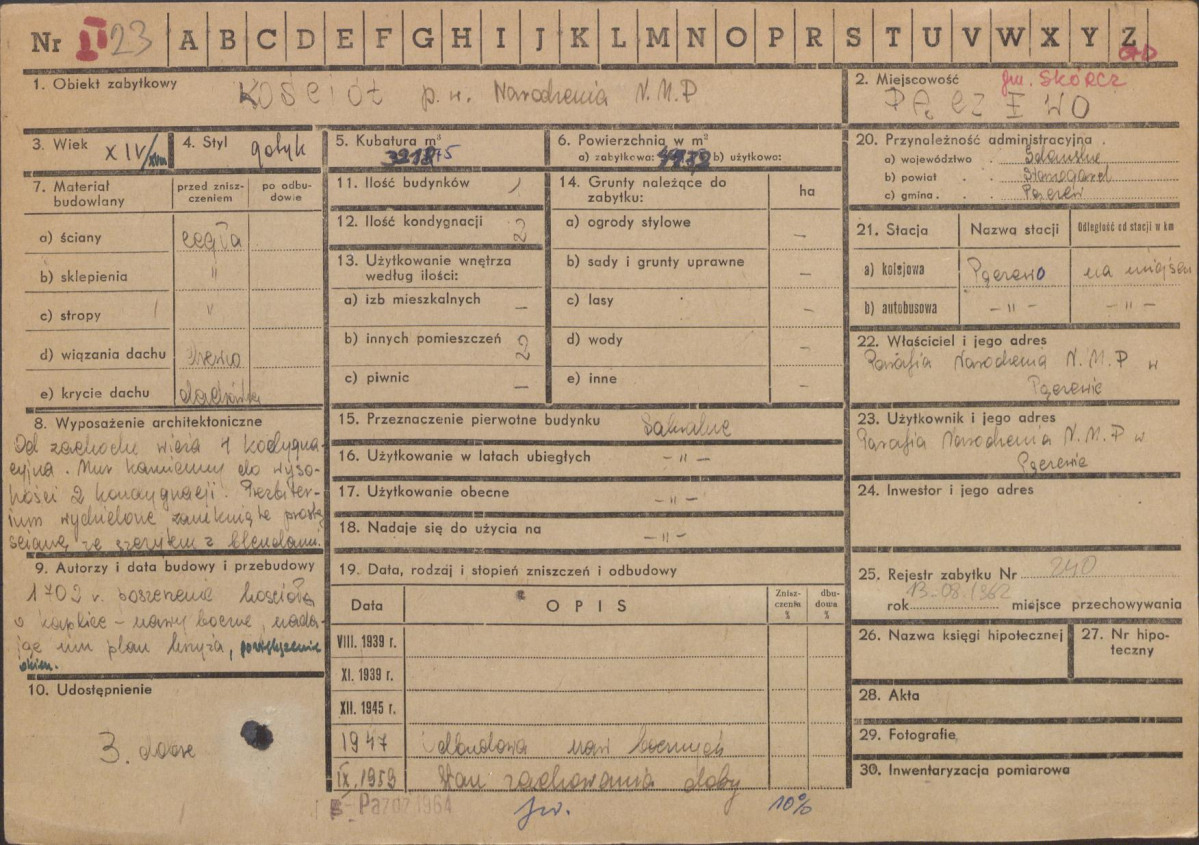 Nr II 23 A B C D E F G H I J K L M N O P R S T U V W X Y Z
1. Obiekt zabytkowy KOŚCIÓŁ p. w. Narodzenia N.M.P
2. Miejscowość gm. SKÓRCZ
PĄCZEWO
3. Wiek XIV/XVIII
4. Styl gotyk
5. Kubatura m³
6. Powierzchnia w m²
a) zabytkowa: b) użytkowo:
20. Przynależność administracyjna
a) województwo Gdańskie
b) powiat Starogard
c) gmina Pączewo
7. Materiał budowlany
przed zniszczeniem
po odbudowie
a) ściany cegła
b) sklepienia "
c) stropy "
d) wiązania dachu drewno
e) krycie dachu dachówka
11. Ilość budynków 1
12. Ilość kondygnacji 2
13. Użytkowanie wnętrza
według ilości:
a) izb mieszkalnych –
b) innych pomieszczeń 2
c) piwnic –
14. Grunty należące do
zabytku:
ha
a) ogrody stylowe –
b) sady i grunty uprawne –
c) lasy –
d) wody –
e) inne –
21. Stacja Nazwa stacji Odległość od stacji w km
a) kolejowa Pączewo na miejscu
b) autobusowa – " – – " –
22. Właściciel i jego adres
Parafia Narodzenia N.M.P w
Pączewie
23. Użytkownik i jego adres
Parafia Narodzenia N.M.P w
Pączewie
24. Inwestor i jego adres
8. Wyposażenie architektoniczne
Od zachodu wieża 4 kodygna-
cyjna. Mur kamienny do wyso-
kości 2 kondygnacji. Prezbiter-
ium wydzielone zamknięte prostą
ścianą ze szczytem z blendami.
9. Autorzy i data budowy i przebudowy
1702 r. poszerzenie kościoła
o kaplice – nawy boczne, nada-
jąc mu plan krzyża, powiększenie
okien.
10. Udostępnienie
3. dobre
15. Przeznaczenie pierwotne budynku Sakralne
16. Użytkowanie w latach ubiegłych – " –
17. Użytkowanie obecne – " –
18. Nadaje się do użycia na – " –
19. Data, rodzaj i stopień zniszczeń i odbudowy
Data OPIS Zniszczenia % dbudowa %
VIII. 1939 r.
XI. 1939 r.
XII. 1945 r.
1947 Odbudowa naw bocznych
IX.1959 Stan zachowania dobry
Paźdz 1964 jw. 10%
25. Rejestr zabytku Nr 240
rok 13.08.1962 miejsce przechowywania
26. Nazwa księgi hipotecznej
27. Nr hipoteczny
28. Akta
29. Fotografie
30. Inwentaryzacja pomiarowa